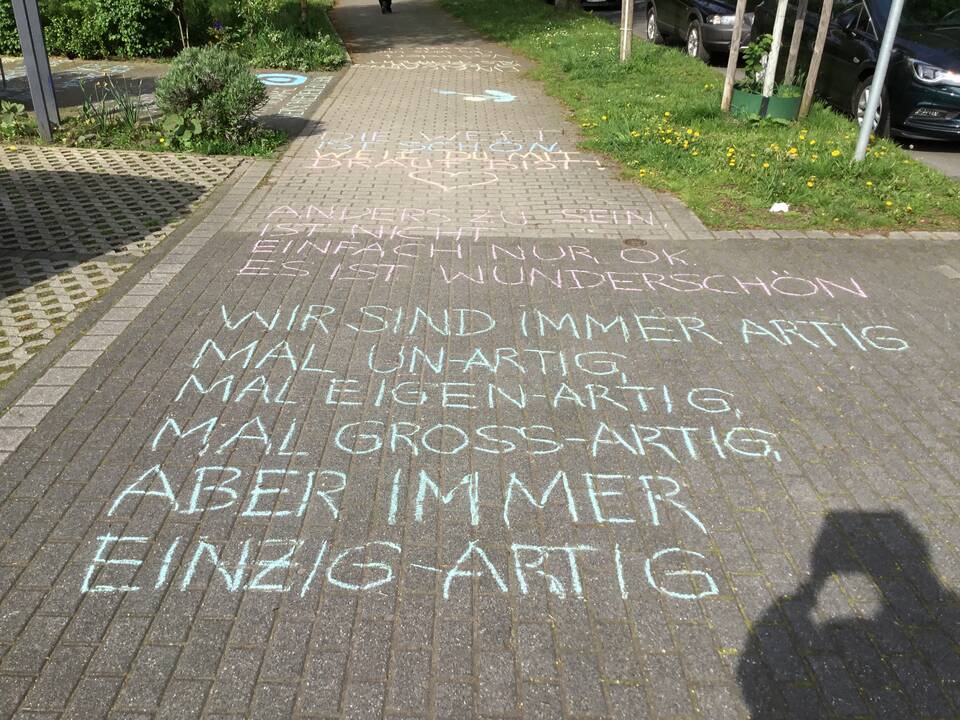 DIE WELT
IST SCHÖN,
WEIL DU MIT
DRAUF BIST!
ANDERS ZU SEIN
IST NICHT
EINFACH NUR OK.
ES IST WUNDERSCHÖN
WIR SIND IMMER ARTIG
MAL UN-ARTIG,
MAL EIGEN-ARTIG,
MAL GROSS-ARTIG,
ABER IMMER
EINZIG-ARTIG